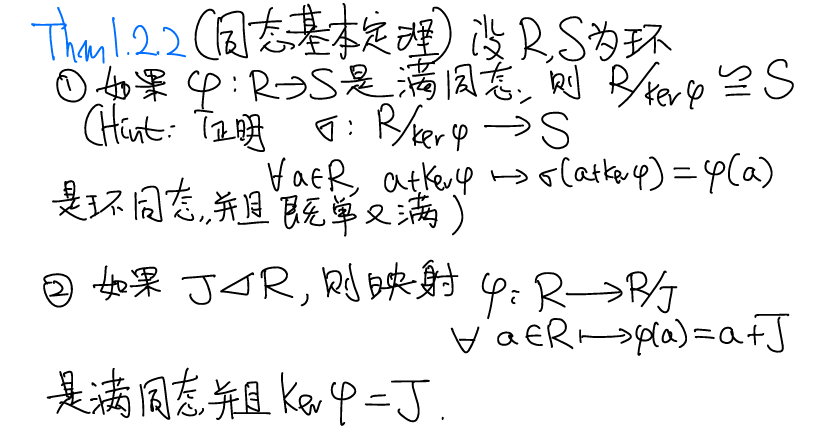 Thm1.2.2 (同态基本定理) 设 R,S为环
① 如果 φ: R→S是满同态, 则 R/kerφ ≅ S
(Hint: 证明 σ: R/kerφ → S
∀a∈R, a+kerφ ↦ σ(a+kerφ) = φ(a)
是环同态,并且既单又满)
② 如果 J◁R, 则映射 φ: R→R/J
∀ a∈R ↦ φ(a) = a+J
是满同态,并且 kerφ = J.